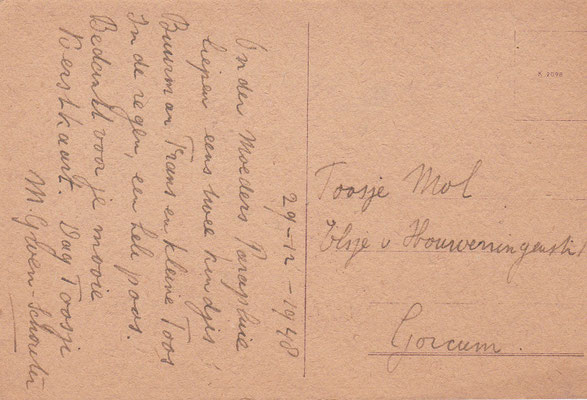 29-12-1948
Onder Moeders Parapluie
liepen eens twee kindjes!
Buurman Frans en kleine Toos
In de regen, een hele poos!
Bedankt voor je mooie
Kerstkaart. Dag Toosje
Toosje Mol
Elsje v Houweningenstr
Gorcum.